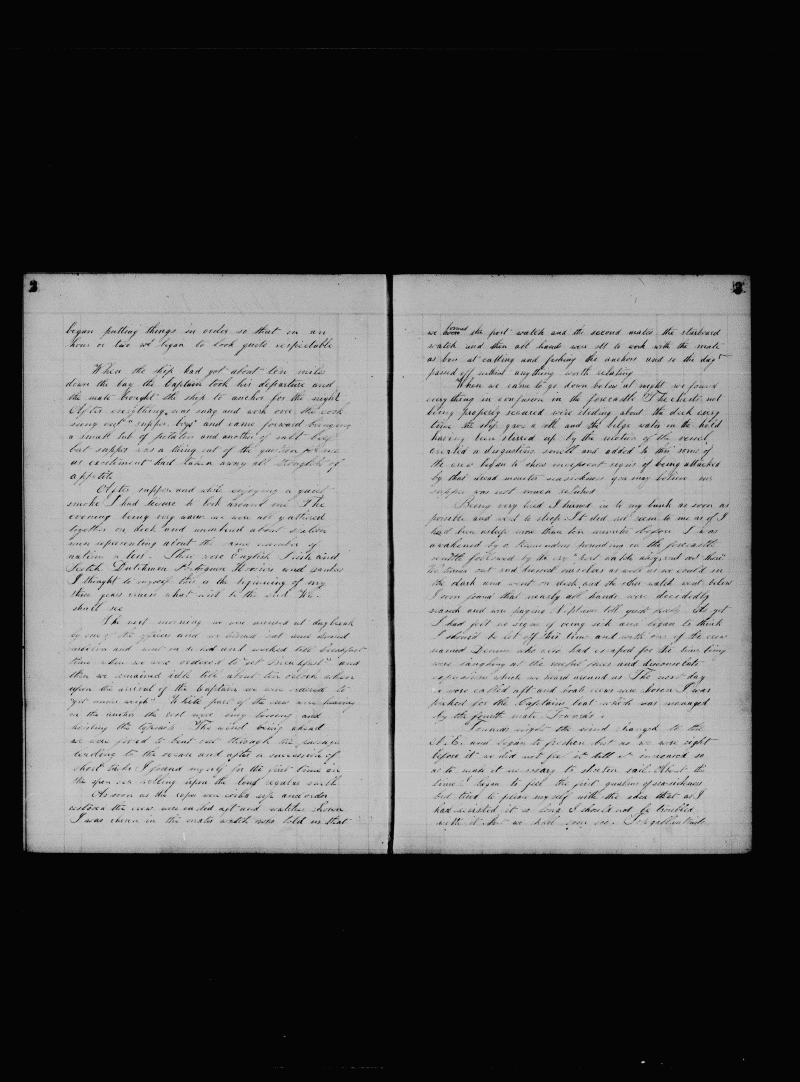 2
began putting things in order so that in an
hour or two we began to look quite respectable
When the ship had got about ten miles
down the bay the Captain took his departure and
the mate brought the ship to anchor for the night
After everything was snug and work over the cook
sung out "supper boys" and came forward bringing
a small tub of potatoes and another of salt beef
but supper was a thing out of the question for me
as excitement had taken away all thoughts of
appetite
After supper and while enjoying a quiet
smoke I had leisure to look around me. The
evening being very warm we were all gathered
together on deck and numbered about sixteen
men representing about the same number of
nationalities. There were English Irish and
Scotch Dutchmen Portuguese Hoosiers and
I thought to myself this is the beginning of my
three years cruise what will be the end. We
shall see
The next morning we were aroused at daybreak
by one of the officers and we turned out and
and went on deck and worked till breakfast
time when we were ordered to "get breakfast" and
then we remained idle till about ten oclock when
upon the arrival of the Captain we were ordered to
"get under weigh" While part of the crew were heaving
in the anchor the rest were busy loosing and
hoisting the topsails. The wind being ahead
we were forced to beat out through the passage
leading to the ocean and after a succession of
short tacks I found myself for the first time on
the open sea rolling upon the long regular swell
As soon as the ropes were coiled up and order
restored the crew were called aft and watches chosen
I was chosen in the mates watch who told us that
3
we formed the port watch and the second mates the starboard
watch and then all hands were set to work with the mate
as boss at catting and fishing the anchors and so the day
passed off without anything worth relating
When we came to go down below at night we found
everything in confusion in the forecastle The chests not
being properly secured were sliding about the deck every
time the ship gave a roll and the bilge water in the hold
having been stirred up by the motion of the vessel
created a disgusting smell and added to this some of
the crew began to show incipient signs of being attacked
by that dread monster seasickness you may believe our
supper was not much relished
Being very tired I turned in to my bunk as soon as
possible and went to sleep. It did not seem to me as if I
had been asleep more than ten minutes before I was
awakened by a tremendous pounding on the forecastle
scuttle followed by the cry "Port watch ahoy, turn out there"
We turned out and dressed ourselves as well as we could in
the dark and went on deck and the other watch went below
I soon found that nearly all hands were decidedly
seasick and were paying Neptune toll quite freely. As yet
I had felt no signs of being sick and began to think
I should be let off this time and with one of the crew
named Dennis who also had escaped for the time being
were laughing at the woeful faces and disconsolate
expressions which we heard around us The next day
we were called aft and boats crews were chosen I was
picked for the Captains boat which was managed
by the fourth mate
Towards night the wind changed to the
N.E. and began to freshen but as we were right
before it we did not feel it till it increased so
as to make it necessary to shorten sail. About this
time I began to feel the first qualms of seasickness
but tried to flatter myself with the idea that as I
had resisted it so long I should not be troubled
with it but we shall soon see.